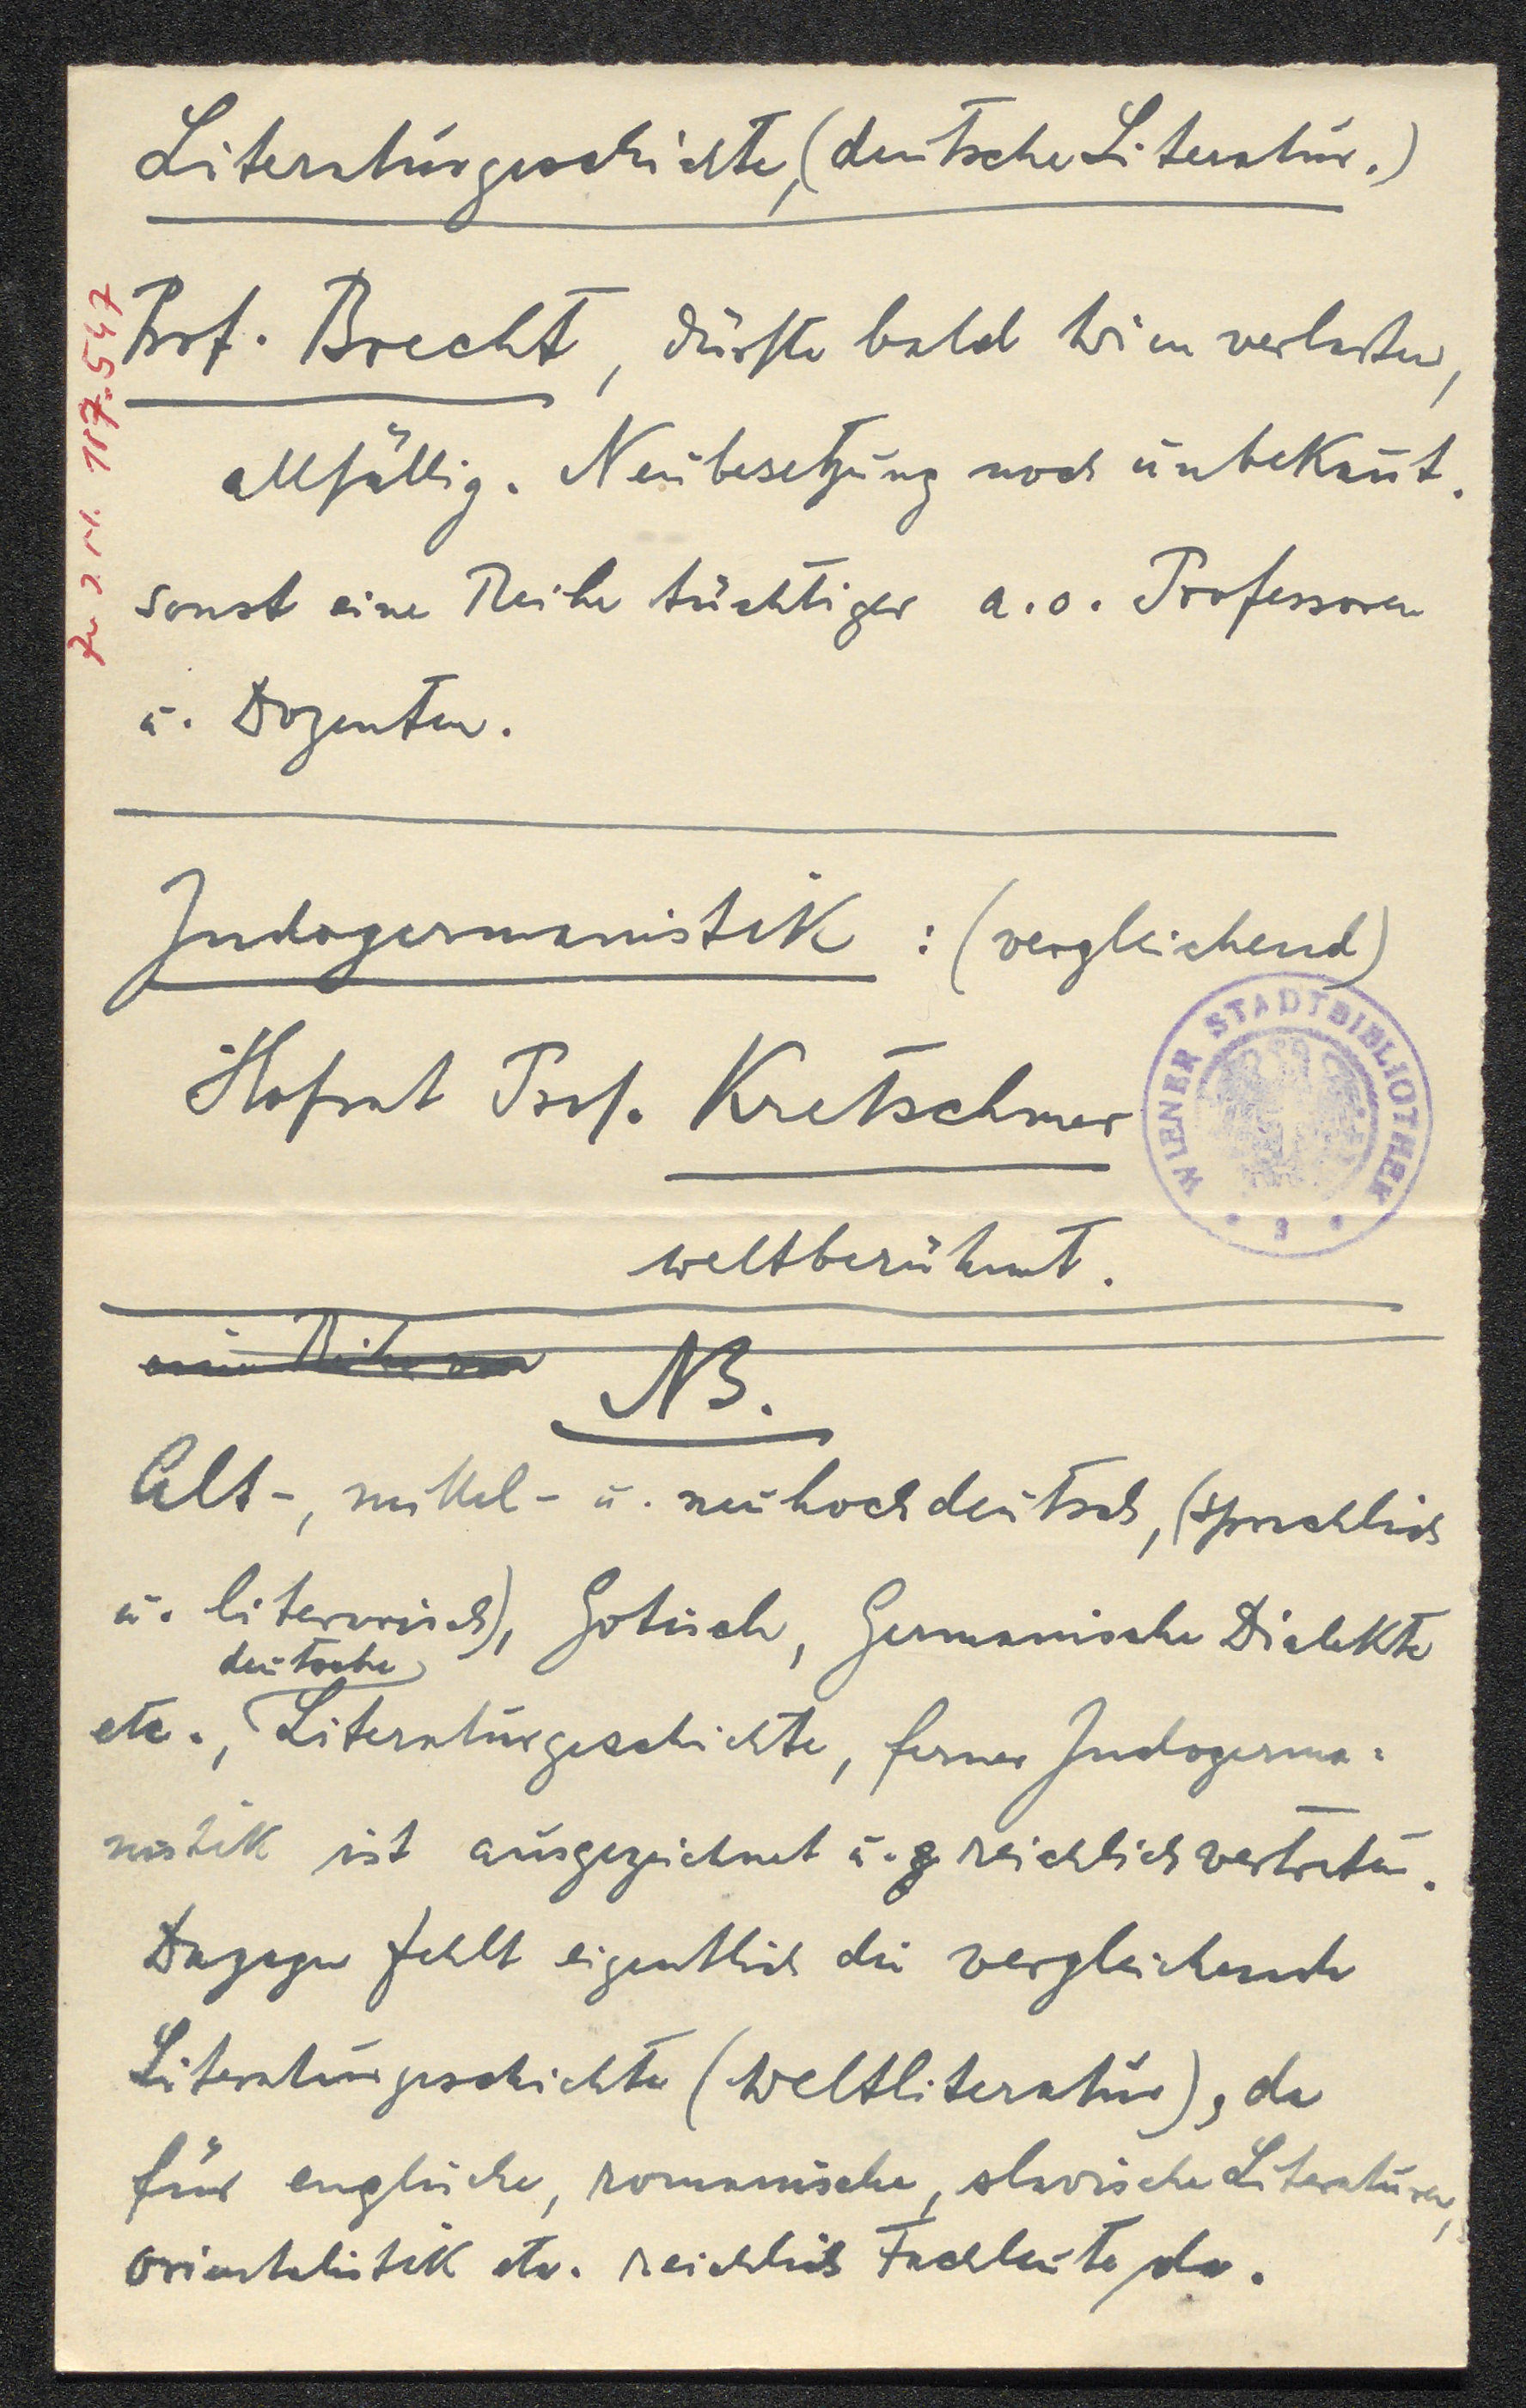 Literaturgeschichte, (deutsche Literatur.)
Prof. Brecht, dürfte bald Wien verlassen,
allfällig. Neubesetzung noch unbekannt.
sonst eine Reihe tüchtiger a.o. Professoren
u. Dozenten.
Indogermanistik : (vergleichend)
Hofrat Prof. Kretschmer
weltberühmt.
eine Reihe von
NB.
Alt-, mittel- u. neuhochdeutsch, (sprachlich
u. literarisch), Gotisch, Germanische Dialekte
deutsche
etc., Literaturgeschichte, ferner Indogerma-
nistik ist ausgezeichnet u. reichlich vertreten.
Dagegen fehlt eigentlich die vergleichende
Literaturgeschichte (Weltliteratur), da
für englische, romanische, slavische Literaturen,
Orientalistik etc. reichlich Fachleute da.
Zu J. N. 187.547
WIENER STADTBIBLIOTHEK